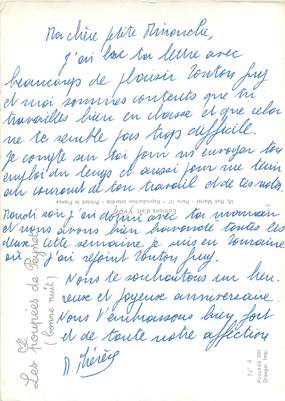 Ma chère petite Minouche,
J'ai lu ta lettre avec
beaucoup de plaisir tonton Guy
et moi sommes contents que tu
travailles bien en classe et que cela
ne te semble pas trop difficile.
Je compte sur toi pour m'envoyer ton
emploi du temps et aussi pour me tenir
au courant de ton travail et de tes notes.
Mardi soir j'ai dormi avec ta maman
et nous avons bien bavardé toutes les
deux. Cette semaine je suis en Touraine
où j'ai rejoint tonton Guy.
Nous te souhaitons un heu-
reux et joyeux anniversaire.
Nous t'embrassons bien fort
et de toute notre affection
Les poupées de Peynet
(bonne nuit)
N° 4
Procédé 301
Draeger, Imp.